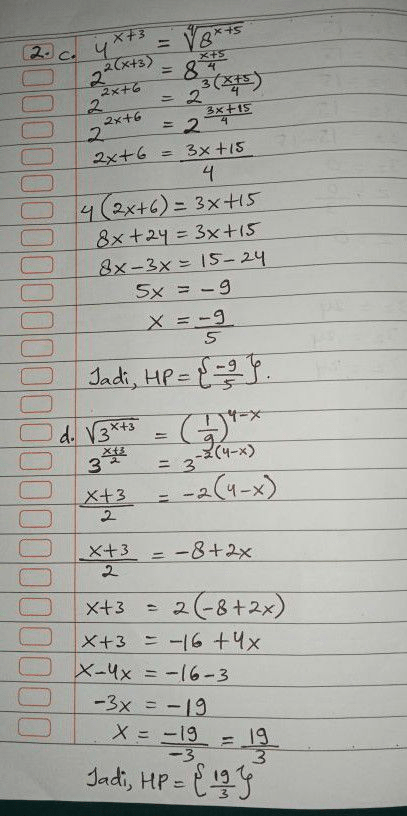 2. c. 4^(x+3) = ⁴√(8^(x+5))
2^(2(x+3)) = 8^((x+5)/4)
2^(2x+6) = 2^(3((x+5)/4))
2^(2x+6) = 2^((3x+15)/4)
2x+6 = (3x+15)/4
4(2x+6) = 3x+15
8x+24 = 3x+15
8x-3x = 15-24
5x = -9
x = -9/5
Jadi, HP = {-9/5}.
d. √(3^(x+3)) = (1/9)^(4-x)
3^((x+3)/2) = 3^(-2(4-x))
(x+3)/2 = -2(4-x)
(x+3)/2 = -8+2x
x+3 = 2(-8+2x)
x+3 = -16+4x
x-4x = -16-3
-3x = -19
x = -19/-3 = 19/3
Jadi, HP = {19/3}